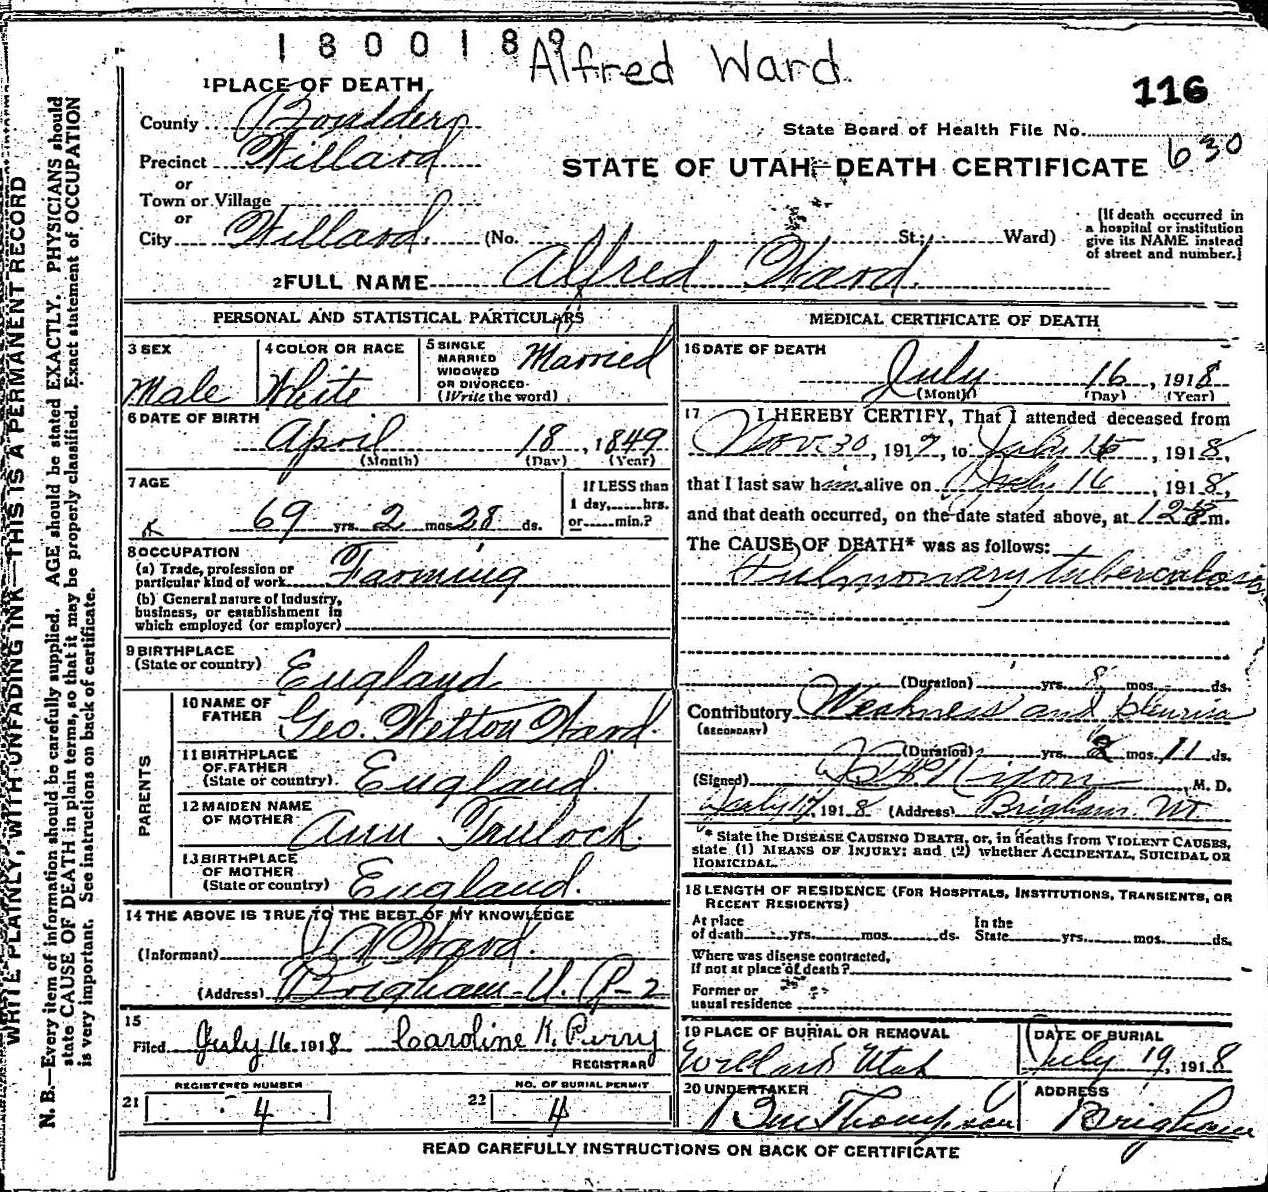 1800189 Alfred Ward
116
1 PLACE OF DEATH
County
State Board of Health File No. 630
Precinct Willard
STATE OF UTAH—DEATH CERTIFICATE
or
Town or Village
or
City Willard (No. St.; Ward)
[If death occurred in
a hospital or institution
give its NAME instead
of street and number.]
2 FULL NAME Alfred Ward
PERSONAL AND STATISTICAL PARTICULARS
3 SEX
Male
4 COLOR OR RACE
White
5 SINGLE
MARRIED
WIDOWED
OR DIVORCED
(Write the word)
Married
6 DATE OF BIRTH
April 18, 1849
(Month) (Day) (Year)
7 AGE
69 yrs. 2 mos. 28 ds.
If LESS than
1 day, hrs.
or min.?
8 OCCUPATION
(a) Trade, profession or
particular kind of work Farming
(b) General nature of Industry,
business, or establishment in
which employed (or employer)
9 BIRTHPLACE
(State or country) England
PARENTS
10 NAME OF
FATHER Geo. Wetton Ward.
11 BIRTHPLACE
OF FATHER
(State or country) England.
12 MAIDEN NAME
OF MOTHER Ann
13 BIRTHPLACE
OF MOTHER
(State or country) England.
14 THE ABOVE IS TRUE TO THE BEST OF MY KNOWLEDGE
(Informant) J A Ward.
(Address) Brigham U. R-2
15
Filed July 16, 1918 Caroline K. Perry
REGISTRAR
REGISTERED NUMBER
21 4
NO. OF BURIAL PERMIT
22 4
MEDICAL CERTIFICATE OF DEATH
16 DATE OF DEATH
July 16, 1918
(Month) (Day) (Year)
17 I HEREBY CERTIFY, That I attended deceased from
Nov. 30, 1917, to July 1918,
that I last saw him alive on July 16, 1918,
and that death occurred, on the date stated above, at m.
The CAUSE OF DEATH* was as follows:
Pulmonary tuberculosis
(Duration) yrs. 8 mos. ds.
Contributory Weakness and
(SECONDARY)
(Duration) yrs. mos. 11 ds.
(Signed) Nixon M. D.
July 17, 1918 (Address) Brigham Ut.
* State the DISEASE CAUSING DEATH, or, in deaths from VIOLENT CAUSES,
state (1) MEANS OF INJURY; and (2) whether ACCIDENTAL, SUICIDAL OR
HOMICIDAL.
18 LENGTH OF RESIDENCE (FOR HOSPITALS, INSTITUTIONS, TRANSIENTS, OR
RECENT RESIDENTS)
At place In the
of death yrs. mos. ds. State yrs. mos. ds.
Where was disease contracted,
If not at place of death?
Former or
usual residence
19 PLACE OF BURIAL OR REMOVAL
Willard Utah
DATE OF BURIAL
July 19, 1918
20 UNDERTAKER
Thompson
ADDRESS
Brigham
READ CAREFULLY INSTRUCTIONS ON BACK OF CERTIFICATE
WRITE PLAINLY, WITH UNFADING INK—THIS IS A PERMANENT RECORD
N. B.—Every item of information should be carefully supplied. AGE should be stated EXACTLY. PHYSICIANS should
state CAUSE OF DEATH in plain terms, so that it may be properly classified. Exact statement of OCCUPATION
is very important. See instructions on back of certificate.